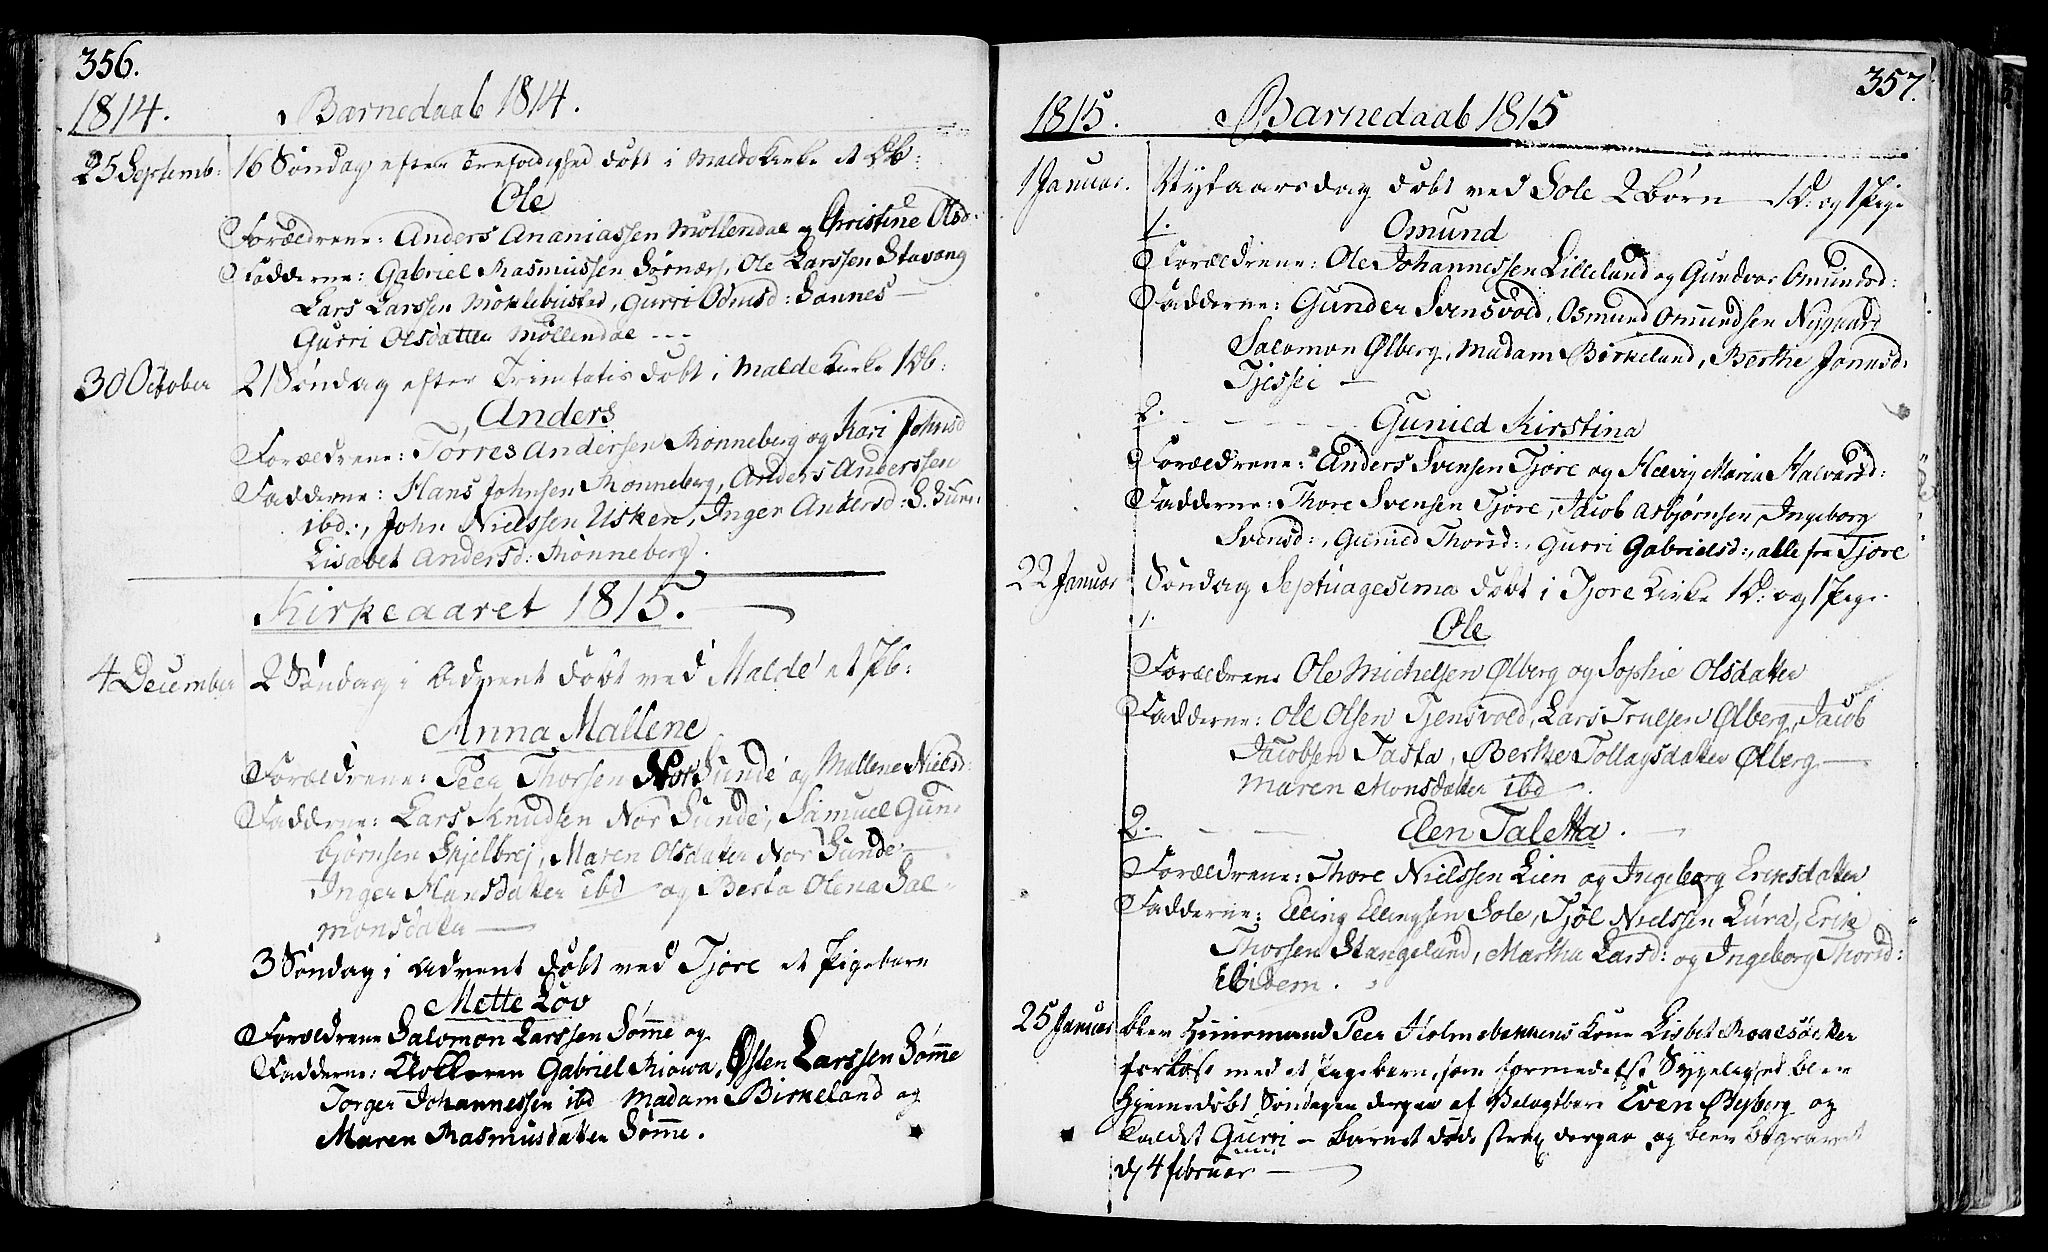 356.
1814. Barnedaab 1814.
25 Septemb: 16 Søndag efter Trefoldighed døbt i Malde Kirke et Db:
Ole
Forældrene: Anders Ananiassen Møllendal og Christine Olsd:
Fadderne: Gabriel Rasmussen Sørnæs, Ole Larssen Stavang
Lars Larssen Møklebusted, Gurri Odmsd: Sannes
Gurri Olsdatter Møllendal ---
30 October 21 Søndag efter Trinitatis døbt i Malde Kirke 1 Db:
Anders
Forældrene: Torres Andersen Rønneberg og Kari Johnsd
Fadderne: Hans Johnsen Rønneberg, Anders Anderssen
ibd:, John Nielssen Usken, Inger Andersd: S.
Lisabet Andersd: Rønneberg.
Kirkeaaret 1815.
4 December 2 Søndag i Advent døbt ved Malde et Pb:
Anna Mallene
Forældrene: Peer Thorsen Nor Sunde og Mallene Nielsd:
Fadderne: Lars Knudsen Nor Sunde, Samuel Gun-
bjørnsen Skjelbrej, Maren Olsdatter Nor Sunde
Inger Hansdatter ibd og Berta Olena Sal-
monsdatter
3 Søndag i Advent døbt ved Tjore et Pigebarn
Mette Løv
Forældrene Salomon Larssen Sømme og
Fadderne: Klokkeren Gabriel Kiowa, Østen Larssen Sømme
Torger Johannessen ibd Madam Birkeland og
Maren Rasmusdatter Sømme.
357.
1815. Barnedaab 1815
1 Januar. Nytaarsdag døbt ved Sole 2 Børn 1 D: og 1 Pige
1. Omund
Forældrene: Ole Johannessen Lilleland og Gundvor Omundsd:
Fadderne: Gunder Svensvold, Osmund Omundsen Nygaard
Salomon Ølberg, Madam Birkeland, Berthe Jonasd:
Tjessei
2. Gunild Kirstina
Forældrene: Anders Svensen Tjore og Helvig Maria Halvorsd:
Fadderne: Thore Svensen Tjore, Jacob Asbjørnsen, Ingeborg
Svensd:, Gunild Thorsd:, Gurri Gabrielsd:, alle fra Tjore
22 Januar Søndag Septuagesima døbt i Tjore Kirke 1 D: og 1 Pige
1. Ole
Forældrene Ole Michelsen Ølberg og Sophie Olsdatter
Fadderne: Ole Olsen Tjensvold, Lars Trulsen Ølberg, Jacob
Jacobsen Tasta, Berthe Tollagsdatter Ølberg
Maren Monsdatter ibd.
2. Elen Taletta.
Forældrene: Thore Nielssen Lien og Ingeborg Eriksdatter
Fadderne: Elling Ellingsen Sole, Tjøl Nielssen Lura, Erik
Thorsen Stangeland, Martha Larsd: og Ingeborg Thorsd:
ibidem.
25 Januar blev Huusmand Peer Holmebakkens Kone Lisbet Roalsdatter
forløst med et Pigebarn, som formedelst Sygelighed blev
hjemmedøbt Søndagen derpaa af Even Ølberg og
kaldet Gurri - barnet døde strax derpaa og blev begravet
d. 4 februar